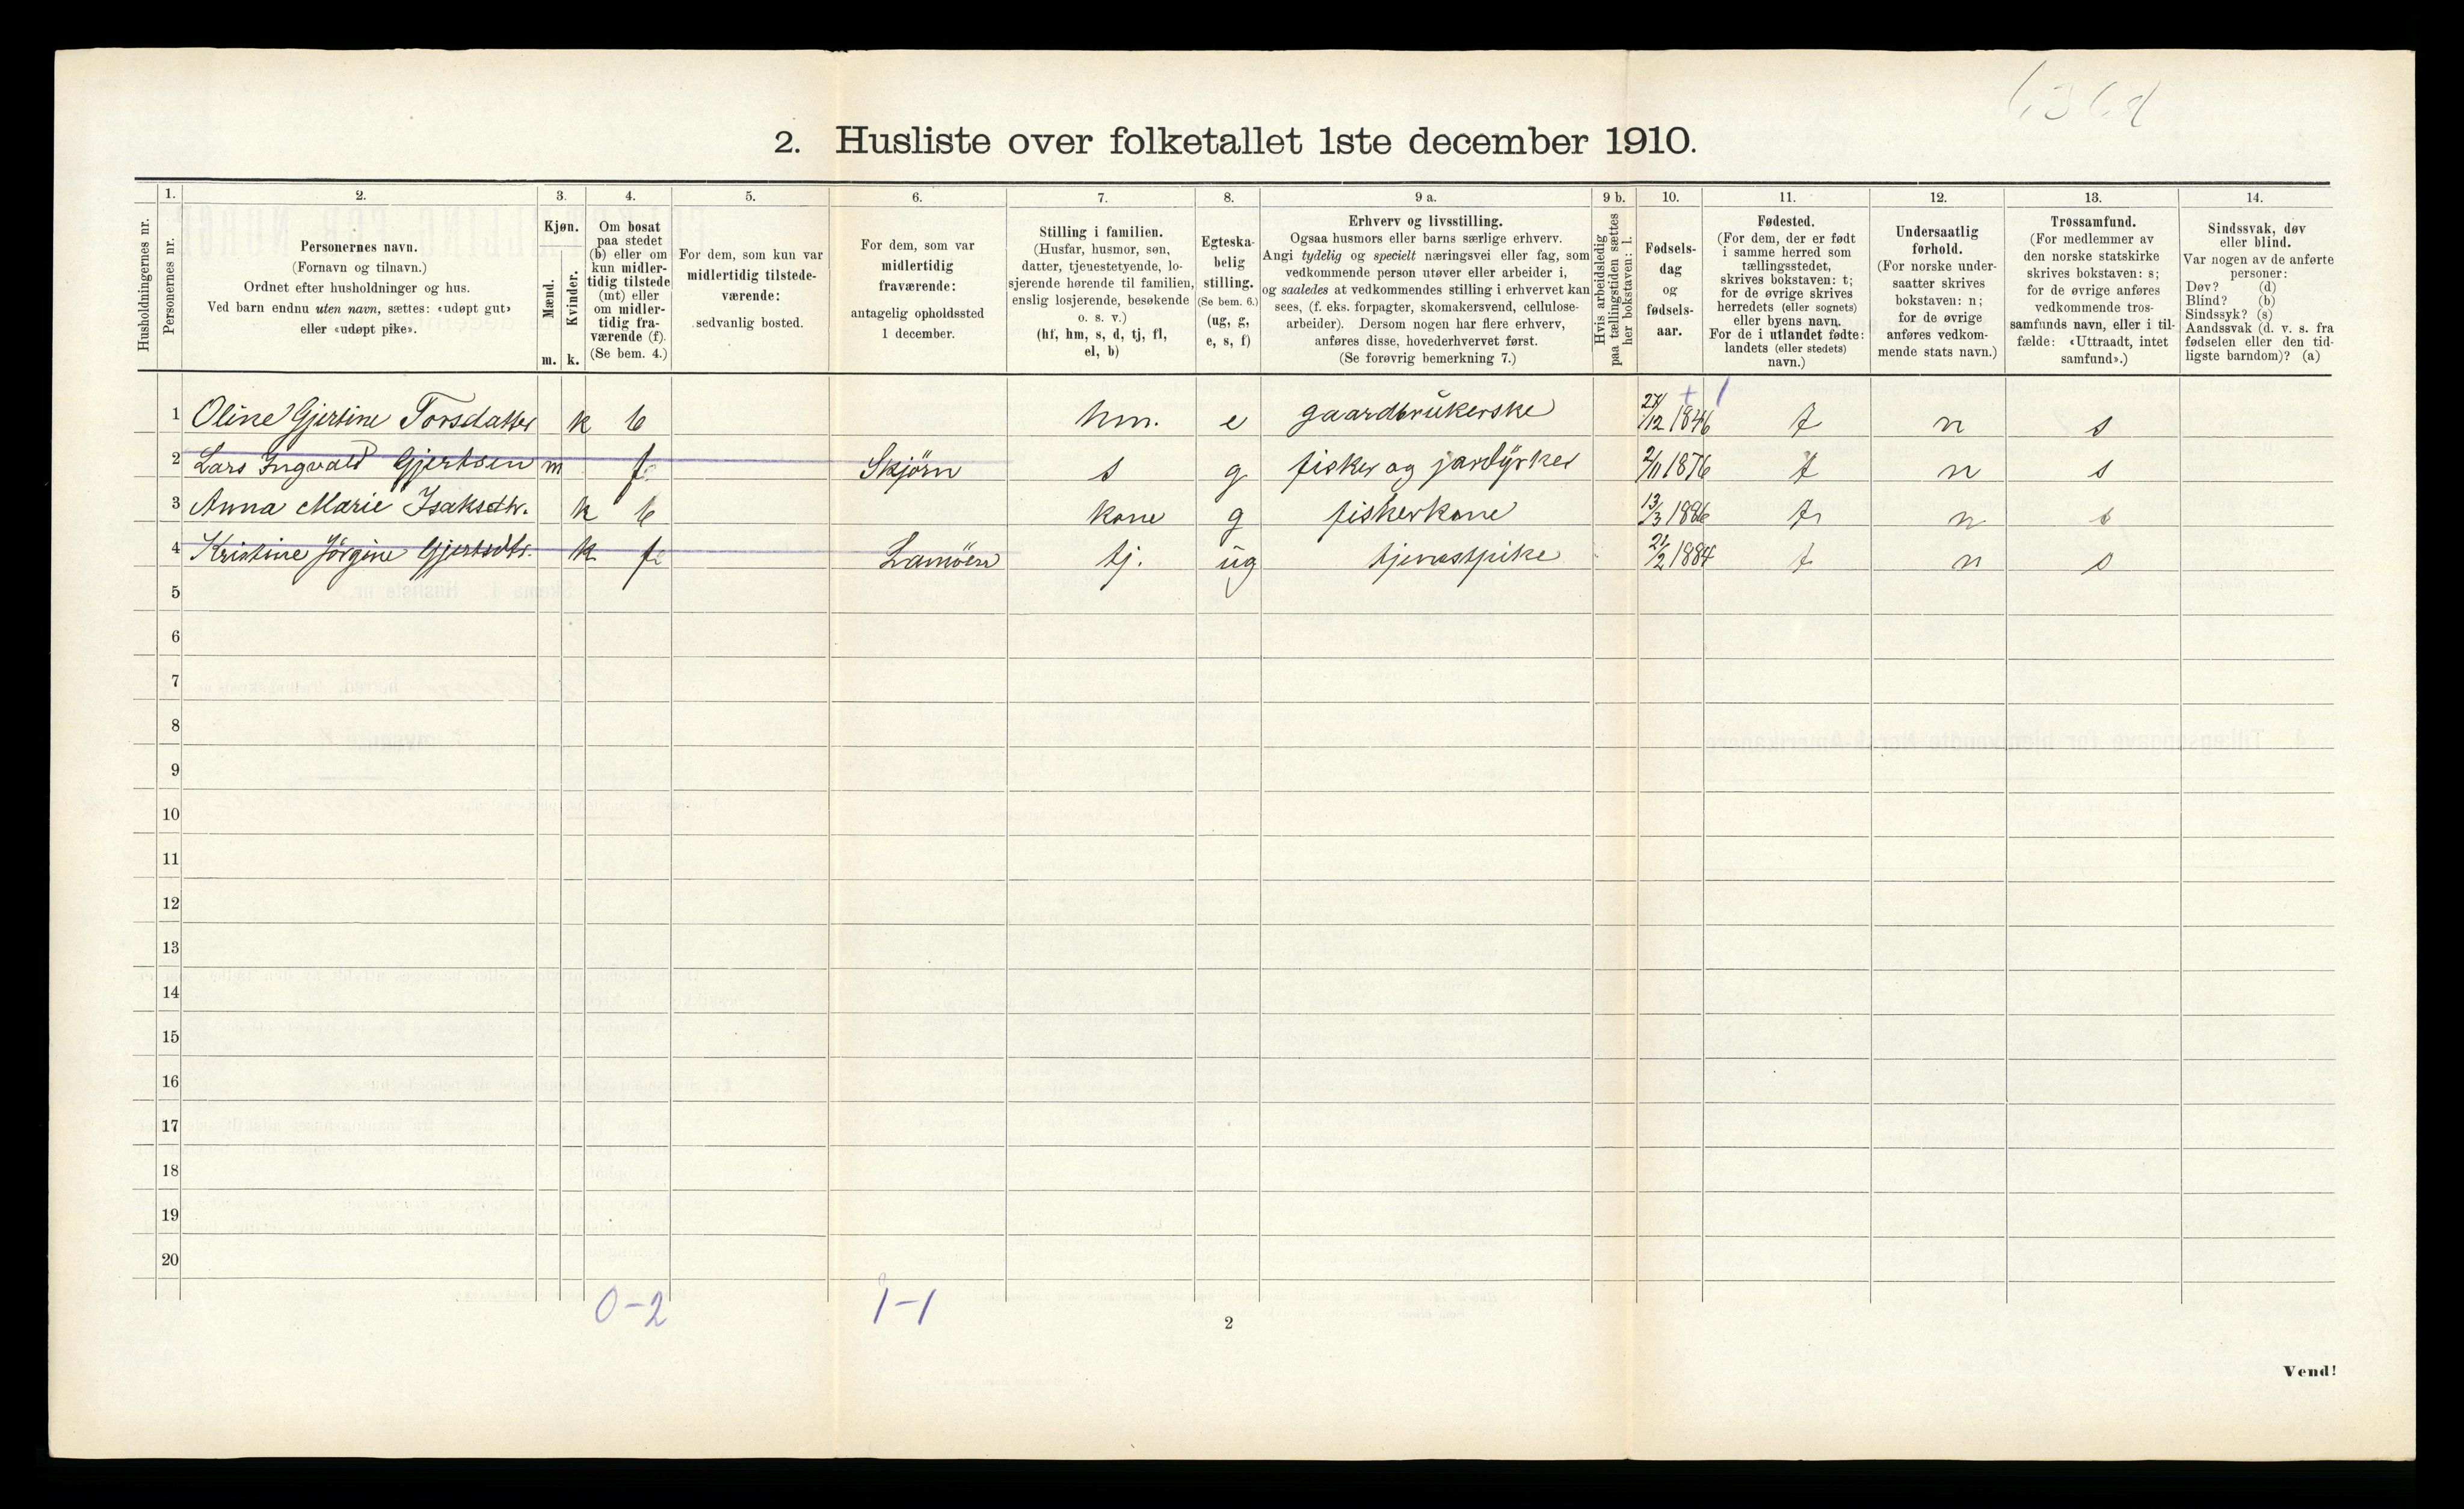 2. Husliste over folketallet 1ste december 1910.
Husholdningernes nr.
1.
Personernes nr.
2.
Personernes navn.
(Fornavn og tilnavn.)
Ordnet efter husholdninger og hus.
Ved barn endnu uten navn, sættes: «udøpt gut»
eller «udøpt pike».
3.
Kjøn.
Mænd.
Kvinder.
m. k.
4.
Om bosat
paa stedet
(b) eller om
kun midler-
tidig tilstede
(mt) eller
om midler-
tidig fra-
værende (f).
(Se bem. 4.)
5.
For dem, som kun var
midlertidig tilstede-
værende:
sedvanlig bosted.
6.
For dem, som var
midlertidig
fraværende:
antagelig opholdssted
1 december.
7.
Stilling i familien.
(Husfar, husmor, søn,
datter, tjenestetyende, lo-
sjerende hørende til familien,
enslig losjerende, besøkende
o. s. v.)
(hf, hm, s, d, tj, fl,
el, b)
8.
Egteska-
belig
stilling.
(Se bem. 6.)
(ug, g,
e, s, f)
9 a.
Erhverv og livsstilling.
Ogsaa husmors eller barns særlige erhverv.
Angi tydelig og specielt næringsvei eller fag, som
vedkommende person utøver eller arbeider i,
og saaledes at vedkommendes stilling i erhvervet kan
sees, (f. eks. forpagter, skomakersvend, cellulose-
arbeider). Dersom nogen har flere erhverv,
anføres disse, hovederhvervet først.
(Se forøvrig bemerkning 7.)
9 b.
Hvis arbeidsledig
paa tællingstiden sættes
her bokstaven: l.
10.
Fødsels-
dag
og
fødsels-
aar.
11.
Fødested.
(For dem, der er født
i samme herred som
tællingsstedet,
skrives bokstaven: t;
for de øvrige skrives
herredets (eller sognets)
eller byens navn.
For de i utlandet fødte:
landets (eller stedets)
navn.)
12.
Undersaatlig
forhold.
(For norske under-
saatter skrives
bokstaven: n;
for de øvrige
anføres vedkom-
mende stats navn.)
13.
Trossamfund.
(For medlemmer av
den norske statskirke
skrives bokstaven: s;
for de øvrige anføres
vedkommende tros-
samfunds navn, eller i til-
fælde: «Uttraadt, intet
samfund».)
14.
Sindssvak, døv
eller blind.
Var nogen av de anførte
personer:
Døv? (d)
Blind? (b)
Sindssyk? (s)
Aandssvak (d. v. s. fra
fødselen eller den tid-
ligste barndom)? (a)
1 Oline Gjertine Torsdatter k b hm. e gaardbrukerske 27/12 1846 t n s
2 Lars Ingvald Gjertsen m f. Skjörn s g fisker og jordyrker 2/11 1876 t n s
3 Anna Marie Isaksdtr. k b kone g fiskerkone 13/3 1886 t n s
4 Kristine Jörgine Gjertsdtr. k f. tj. ug tjenestpike 21/2 1884 t n s
5
6
7
8
9
10
11
12
13
14
15
16
17
18
19
20
0-2 1-1
2
Vend!